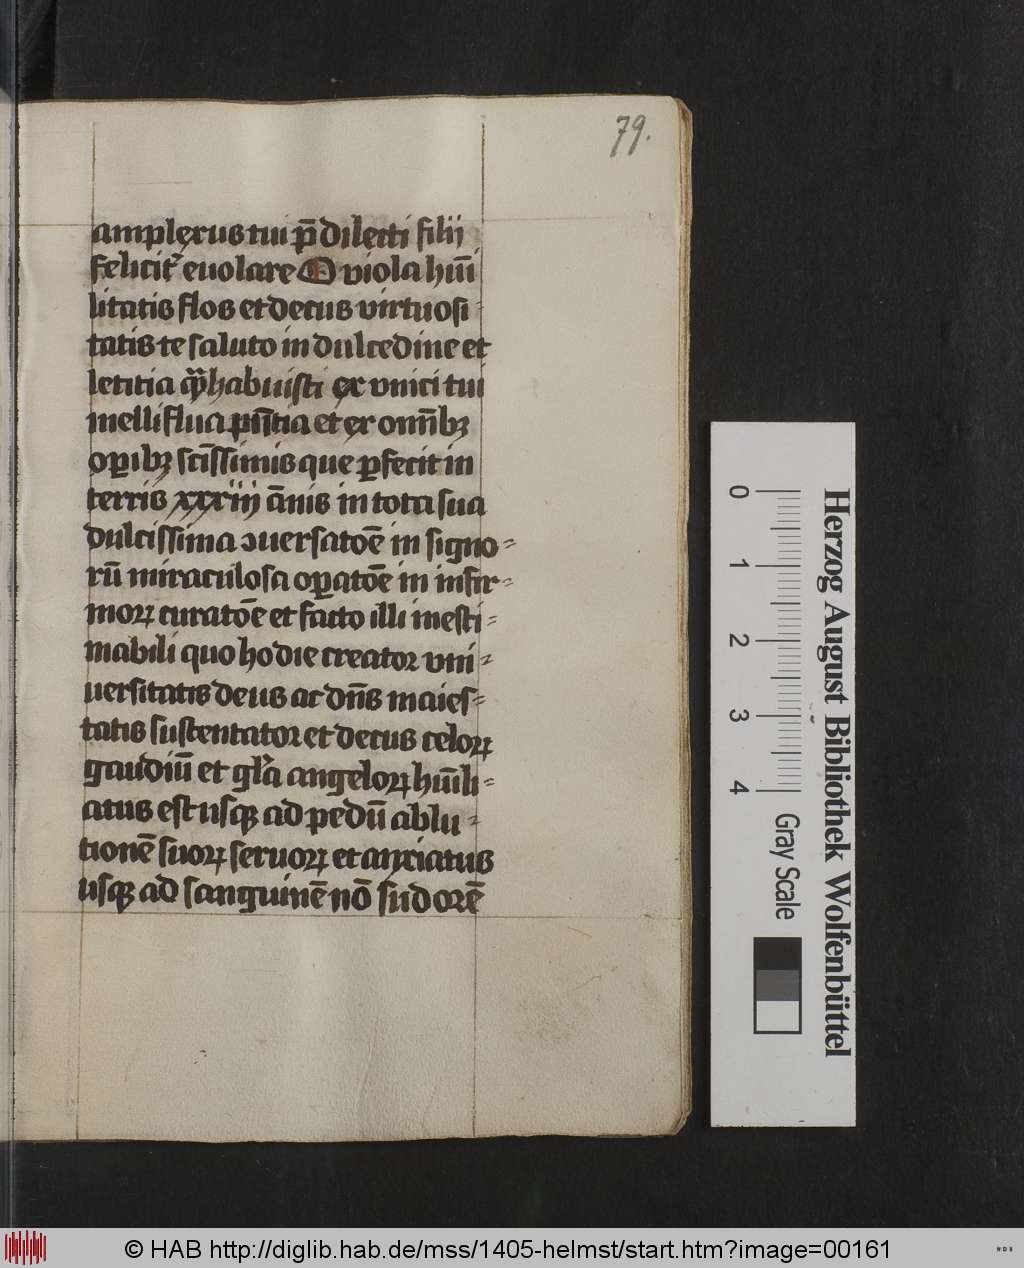 79.
amplexus tui p̄dilecti filij
felicit᷑ euolare O viola hūi
litatis flos et decus virtuosi-
tatis te saluto in dulcedine et
letitia qͣ̄ habuisti ex vnici tui
melliflua pn̄tia et ex omībꝫ
oꝑibꝫ scīssimis que ꝑfecit in
terris xxxiij ānis in tota sua
dulcissima ꝯuersatōe in signo-
rū miraculosa oꝑatōe in infir-
moꝝ curatōe et facto illi inesti-
mabili quo hodie creator vni-
uersitatis deus ac dn̄s maies-
tatis sustentator et decus celoꝝ
gaudiū et gl̄a angeloꝝ hūili-
atus est usqꝫ ad pedū ablu-
tionē suoꝝ seruoꝝ et anxiatus
usqꝫ ad sanguinē nō sudorē
0
1
2
3
4
Gray Scale
Herzog August Bibliothek Wolfenbüttel
© HAB http://diglib.hab.de/mss/1405-helmst/start.htm?image=00161